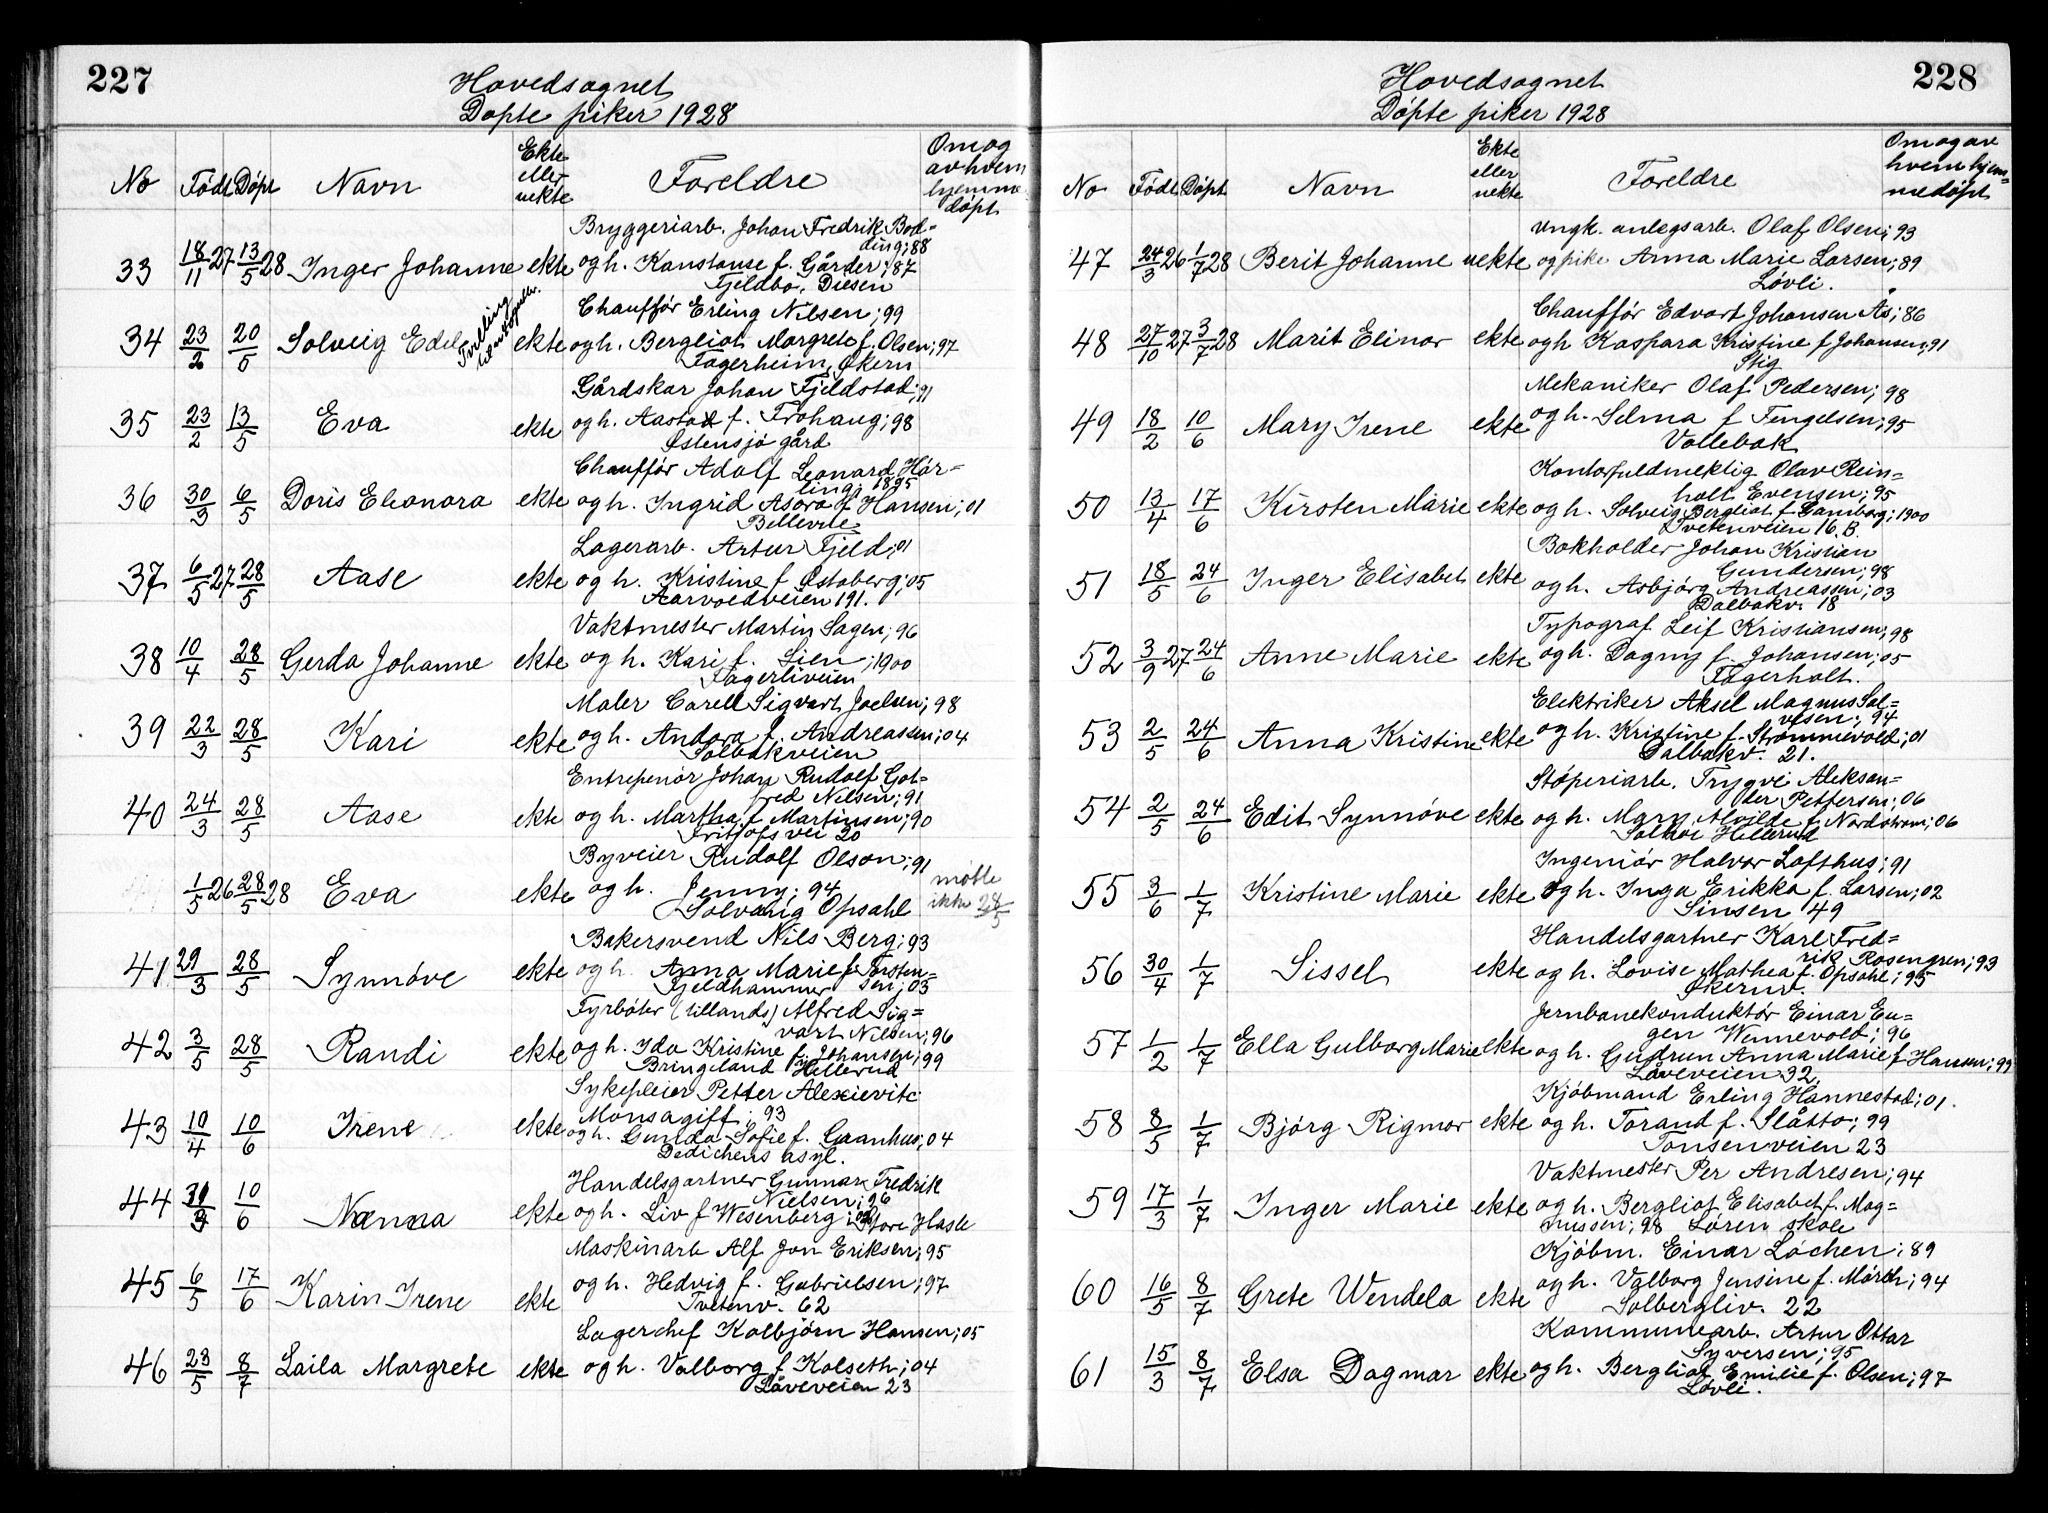 227
Hovedsognet
Døpte piker 1928
No Født Døpt Navn Ekte eller uekte Foreldre Om og av hvem hjemmedøpt
Bryggeriarb. Johan Fredrik Bod=
ding; 88
33 18/11 27 13/5 28 Inger Johanne ekte og h. Konstanse f. Gårder; 87
Gjeldbo, Disen
Chauffør Erling Nilsen; 99
34 23/2 20/5 Solveig Edel Tvilling ekte og h. Bergliot Margrete f. Olsen; 97
Fagerheim, Økern
Gårdskar Johan Fjeldstad; 91
35 23/2 13/5 Eva ekte og h. Aasta f. Frohaug; 98
Østensjø gård
Chauffør Adolf Leonard Hår=
ling; 1895
36 30/3 6/5 Doris Eleonora ekte og h. Ingrid Asora f Hansen; 01
Bellevue
Lagerarb. Artur Fjeld; 01
37 6/5 27 28/5 Aase ekte og h. Kristine f Østaberg; 05
Aarvoldveien 191.
Vaktmester Martin Sagen; 96
38 10/4 28/5 Gerda Johanne ekte og h. Kari f. Lien; 1900
Fagerliveien
Maler Carell Sigvart Joelsen; 98
39 22/3 28/5 Kari ekte og h. Andora f. Andreassen; 04
Solbakveien
Entrepenør Johan Rudolf Got=
fred Nilsen; 91
40 24/3 28/5 Aase ekte og h. Martha f. Martinsen; 90
Fritjofs vei 20
Byveier Rudolf Olson; 91
1/5 26 28/5 28 Eva ekte og h. Jenny; 94 møtte
Solvang Opsahl ikke 28/5
Bakersvend Nils Berg; 93
41 29/3 28/5 Synnøve ekte og h. Anna Marie f. Torsten=
Fjeldhammer sen; 03
Fyrbøter (tillands) Alfred Sig=
vart Nilsen; 96
42 3/5 28/5 Randi ekte og h. Ida Kristine f. Johansen; 99
Bringeland Hellerud
Sykepleier Petter Alexievitc
Monsagiff; 93
43 10/4 10/6 Irene ekte og h. Gunda Sofie f. Gaanhus; 04
Dedichens asyl.
Handelsgartner Gunnar Fredrik
Nielsen; 96
44 10/6 Nanna ekte og h. Liv f Wesenberg; Store Hasle
Maskinarb Alf Jon Eriksen; 95
45 6/5 17/6 Karin Irene ekte og h. Hedvig f. Gabrielsen; 97
Tvetenv. 62
Lagerchef Kolbjørn Hansen; 05
46 23/5 8/7 Laila Margrete ekte og h. Valborg f. Kolseth; 04
Låveveien 23
228
Hovedsognet
Døpte piker 1928
No Født Døpt Navn Ekte eller uekte Foreldre Om og av hvem hjem=medøpt
Ungk. anlegsarb. Olaf Olsen; 93
47 24/3 26 1/7 28 Berit Johanne uekte og pike Anna Marie Larsen; 89
Løvli.
Chauffør Edvart Johansen Ås; 86
48 27/10 27 3/7 28 Marit Elinor ekte og h Kaspara Kristine f Johansen; 91
Stig
Mekaniker Olaf Pedersen; 98
49 18/2 10/6 Mary Irene ekte og h. Selma f Tengelsen; 95
Vollebæk
Kontorfuldmektig Olav Rein=
holt Evensen; 95
50 13/4 17/6 Kirsten Marie ekte og h. Solveig Bergliot f. Gamborg; 1900
Tvetenveien 16 B.
Bokholder Johan Kristian
Gundersen; 98
51 18/5 24/6 Inger Elisabet ekte og h. Asbjørg Andreassen; 03
Dalbakv. 18
Typograf Leif Kristiansen; 98
52 3/9 27 24/6 Anne Marie ekte og h. Dagny f. Johansen; 05
Fagerholt.
Elektriker Aksel Magnus Sal=
vesen; 94
53 2/5 24/6 Anna Kristine ekte og h. Kristine f. Strømmevold; 01
Dalbakv. 21.
Støperiarb. Trygve Aleksan=
der Pettersen; 06
54 2/5 24/6 Edit Synnøve ekte og h. Mary Alvilde f Nordstrøm; 06
Solhøi Hellerud
Ingeniør Halvor Lofthus; 91
55 3/6 1/7 Kristine Marie ekte og h. Inga Erikka f. Larsen; 02
Sinsen 49
Handelsgartner Karl Fred=
rik Rosengren; 93
56 30/4 1/7 Sissel ekte og h. Lovise Mathea f. Opsahl; 95
Økernv.
Jernbanekonduktør Einar Eu=
gen Wennevold; 96
57 1/2 1/7 Ella Gulborg Marie ekte og h. Gudrun Anna Marie f Hansen; 99
Låveveien 32.
Kjøbmand Erling Hannestad; 01.
58 8/5 1/7 Bjørg Rigmor ekte og h. Torand f. Slåtto; 99
Tonsenveien 23
Vaktmester Per Andresen; 94
59 17/3 1/7 Inger Marie ekte og h. Bergliot Elisabet f. Mag=
nussen; 98 Løren skole
Kjøbm. Einar Løchen; 89
60 16/5 8/7 Grete Wendela ekte og h. Valborg Jensine f. Mørch; 94
Solbergliv. 22
Kommunearb. Artur Ottar
Syversen; 95
61 15/3 8/7 Elsa Dagmar ekte og h. Bergliot Emilie f. Olsen; 97
Løvli.